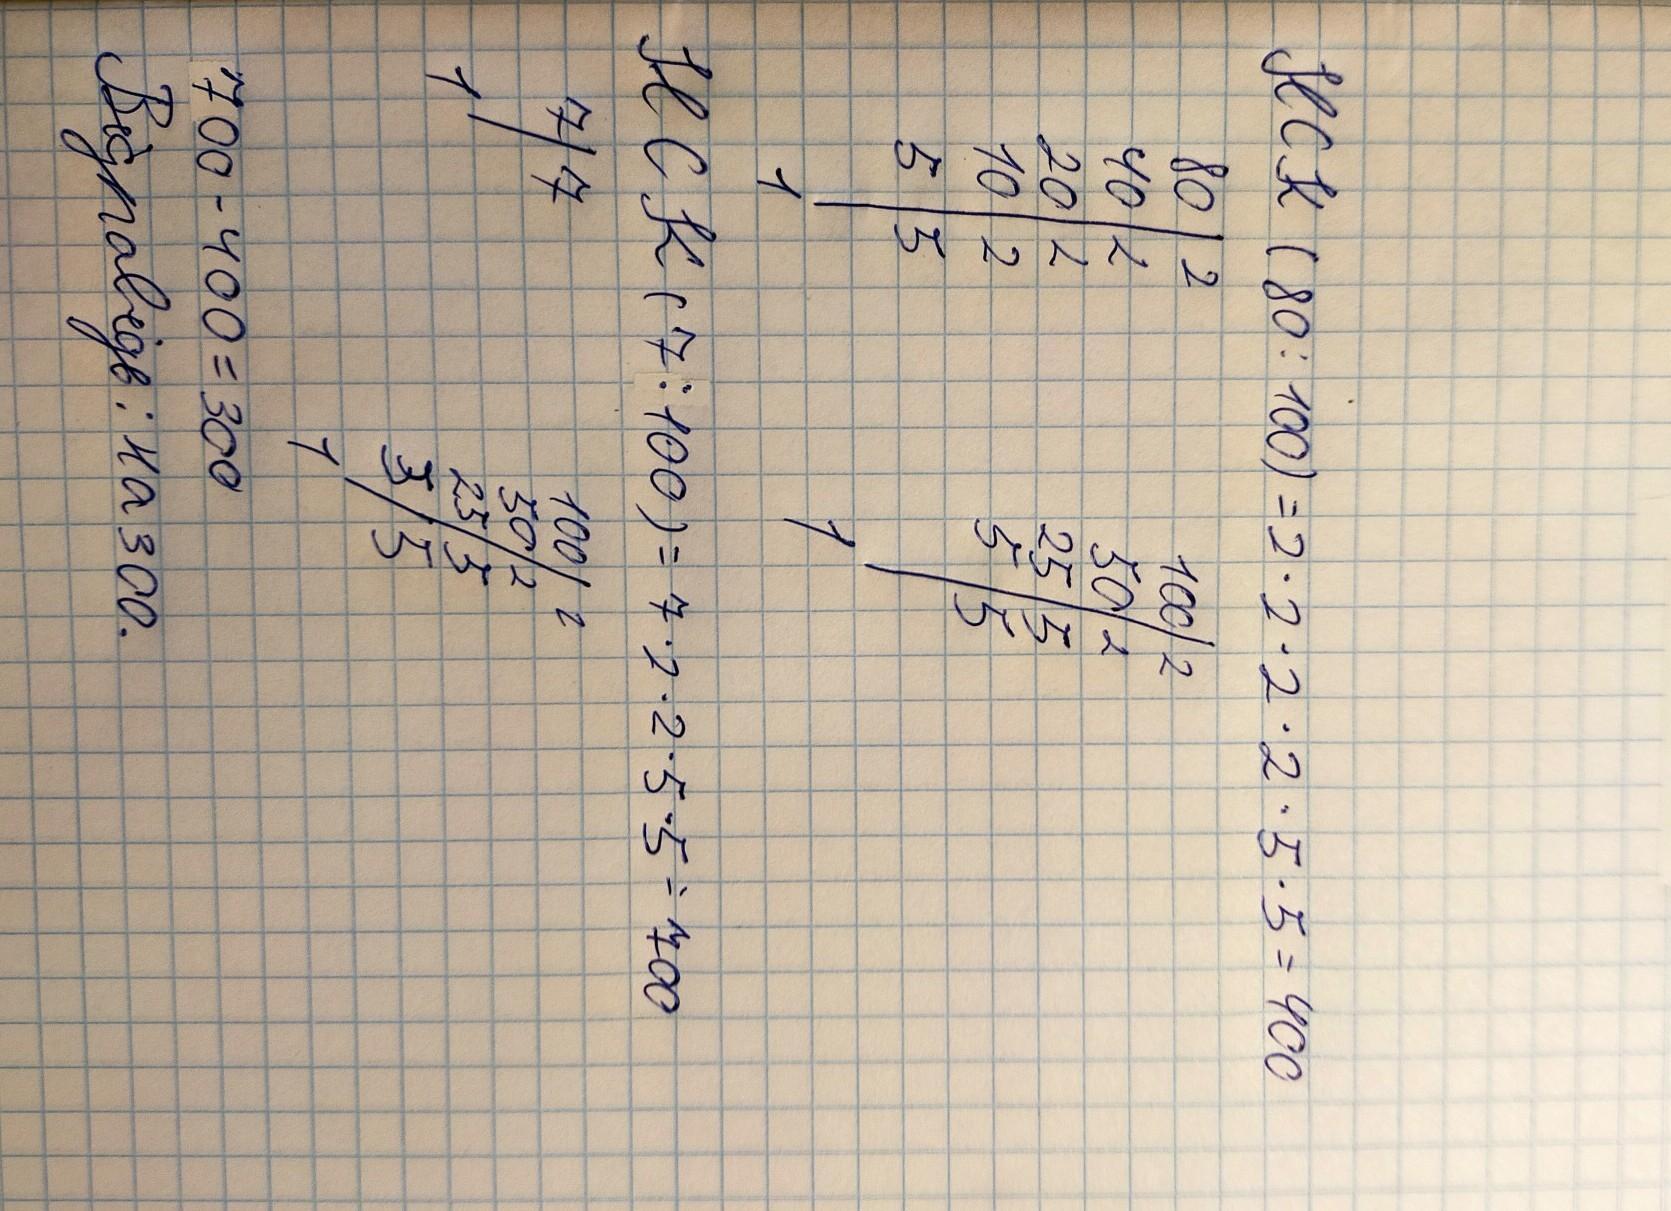 НСК (80:100)=2·2·2·2·5·5=400
80|2 100|2
40|2 50|2
20|2 25|5
10|2 5|5
5|5 1
1
НСК (7:100)=7·2·2·5·5=700
7|7 100|2
1 50|2
25|5
5|5
1
700-400=300
Відповідь: на 300.